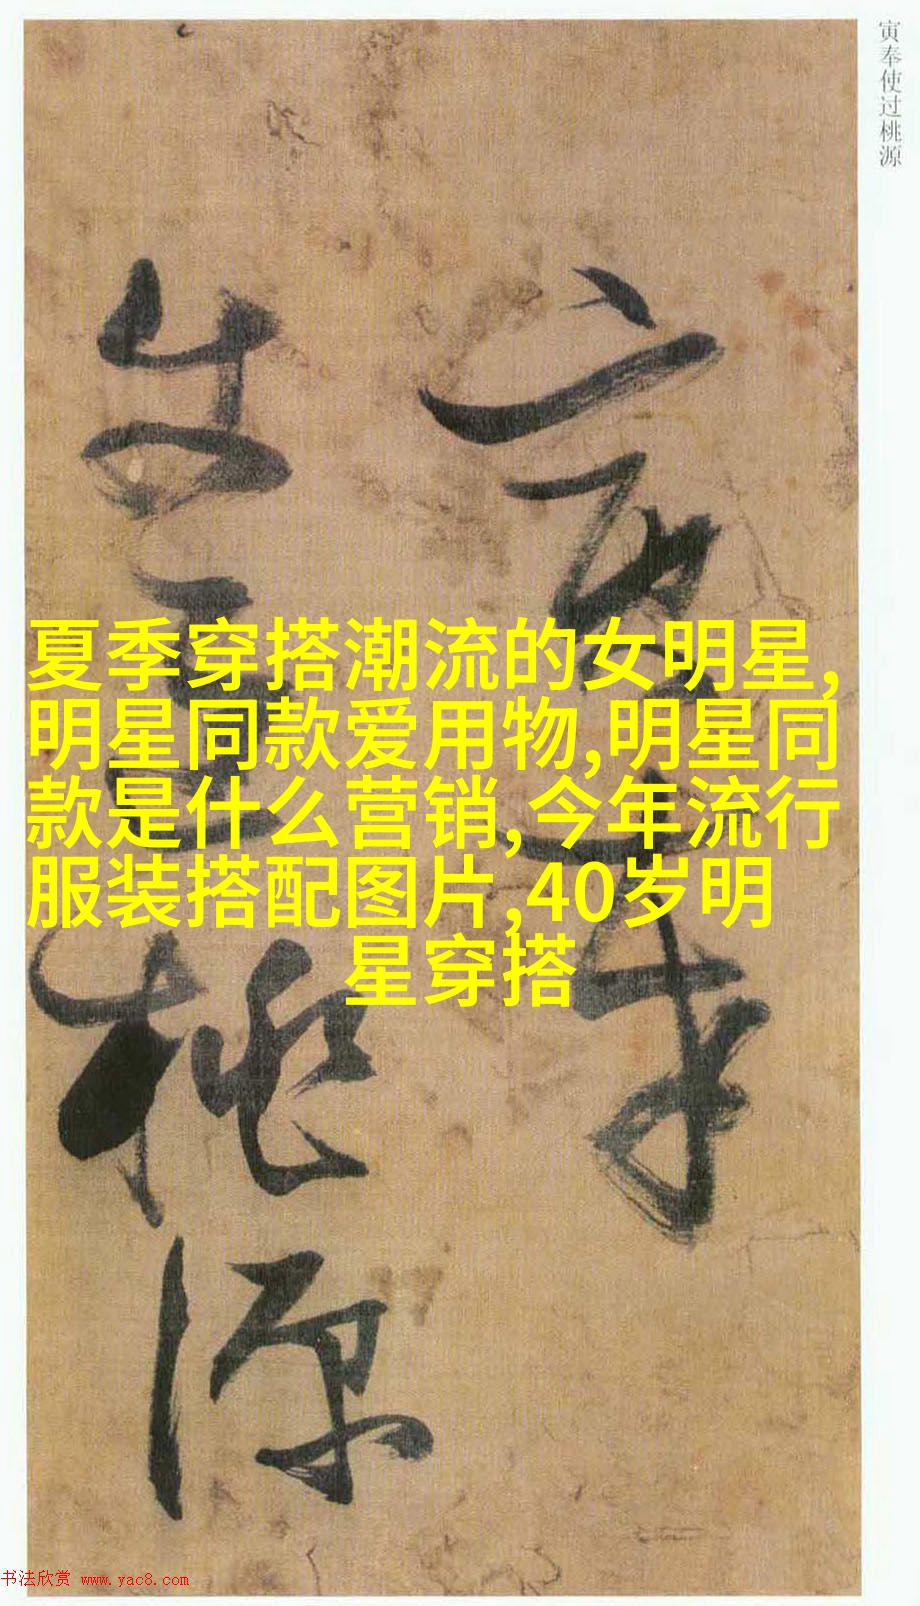 寅奉使过桃源
夏季穿搭潮流的女明星,
明星同款爱用物,明星同
款是什么营销,今年流行
服装搭配图片,40岁明
星穿搭
寅奉
使過桃源
书法欣赏 www.yac8.com